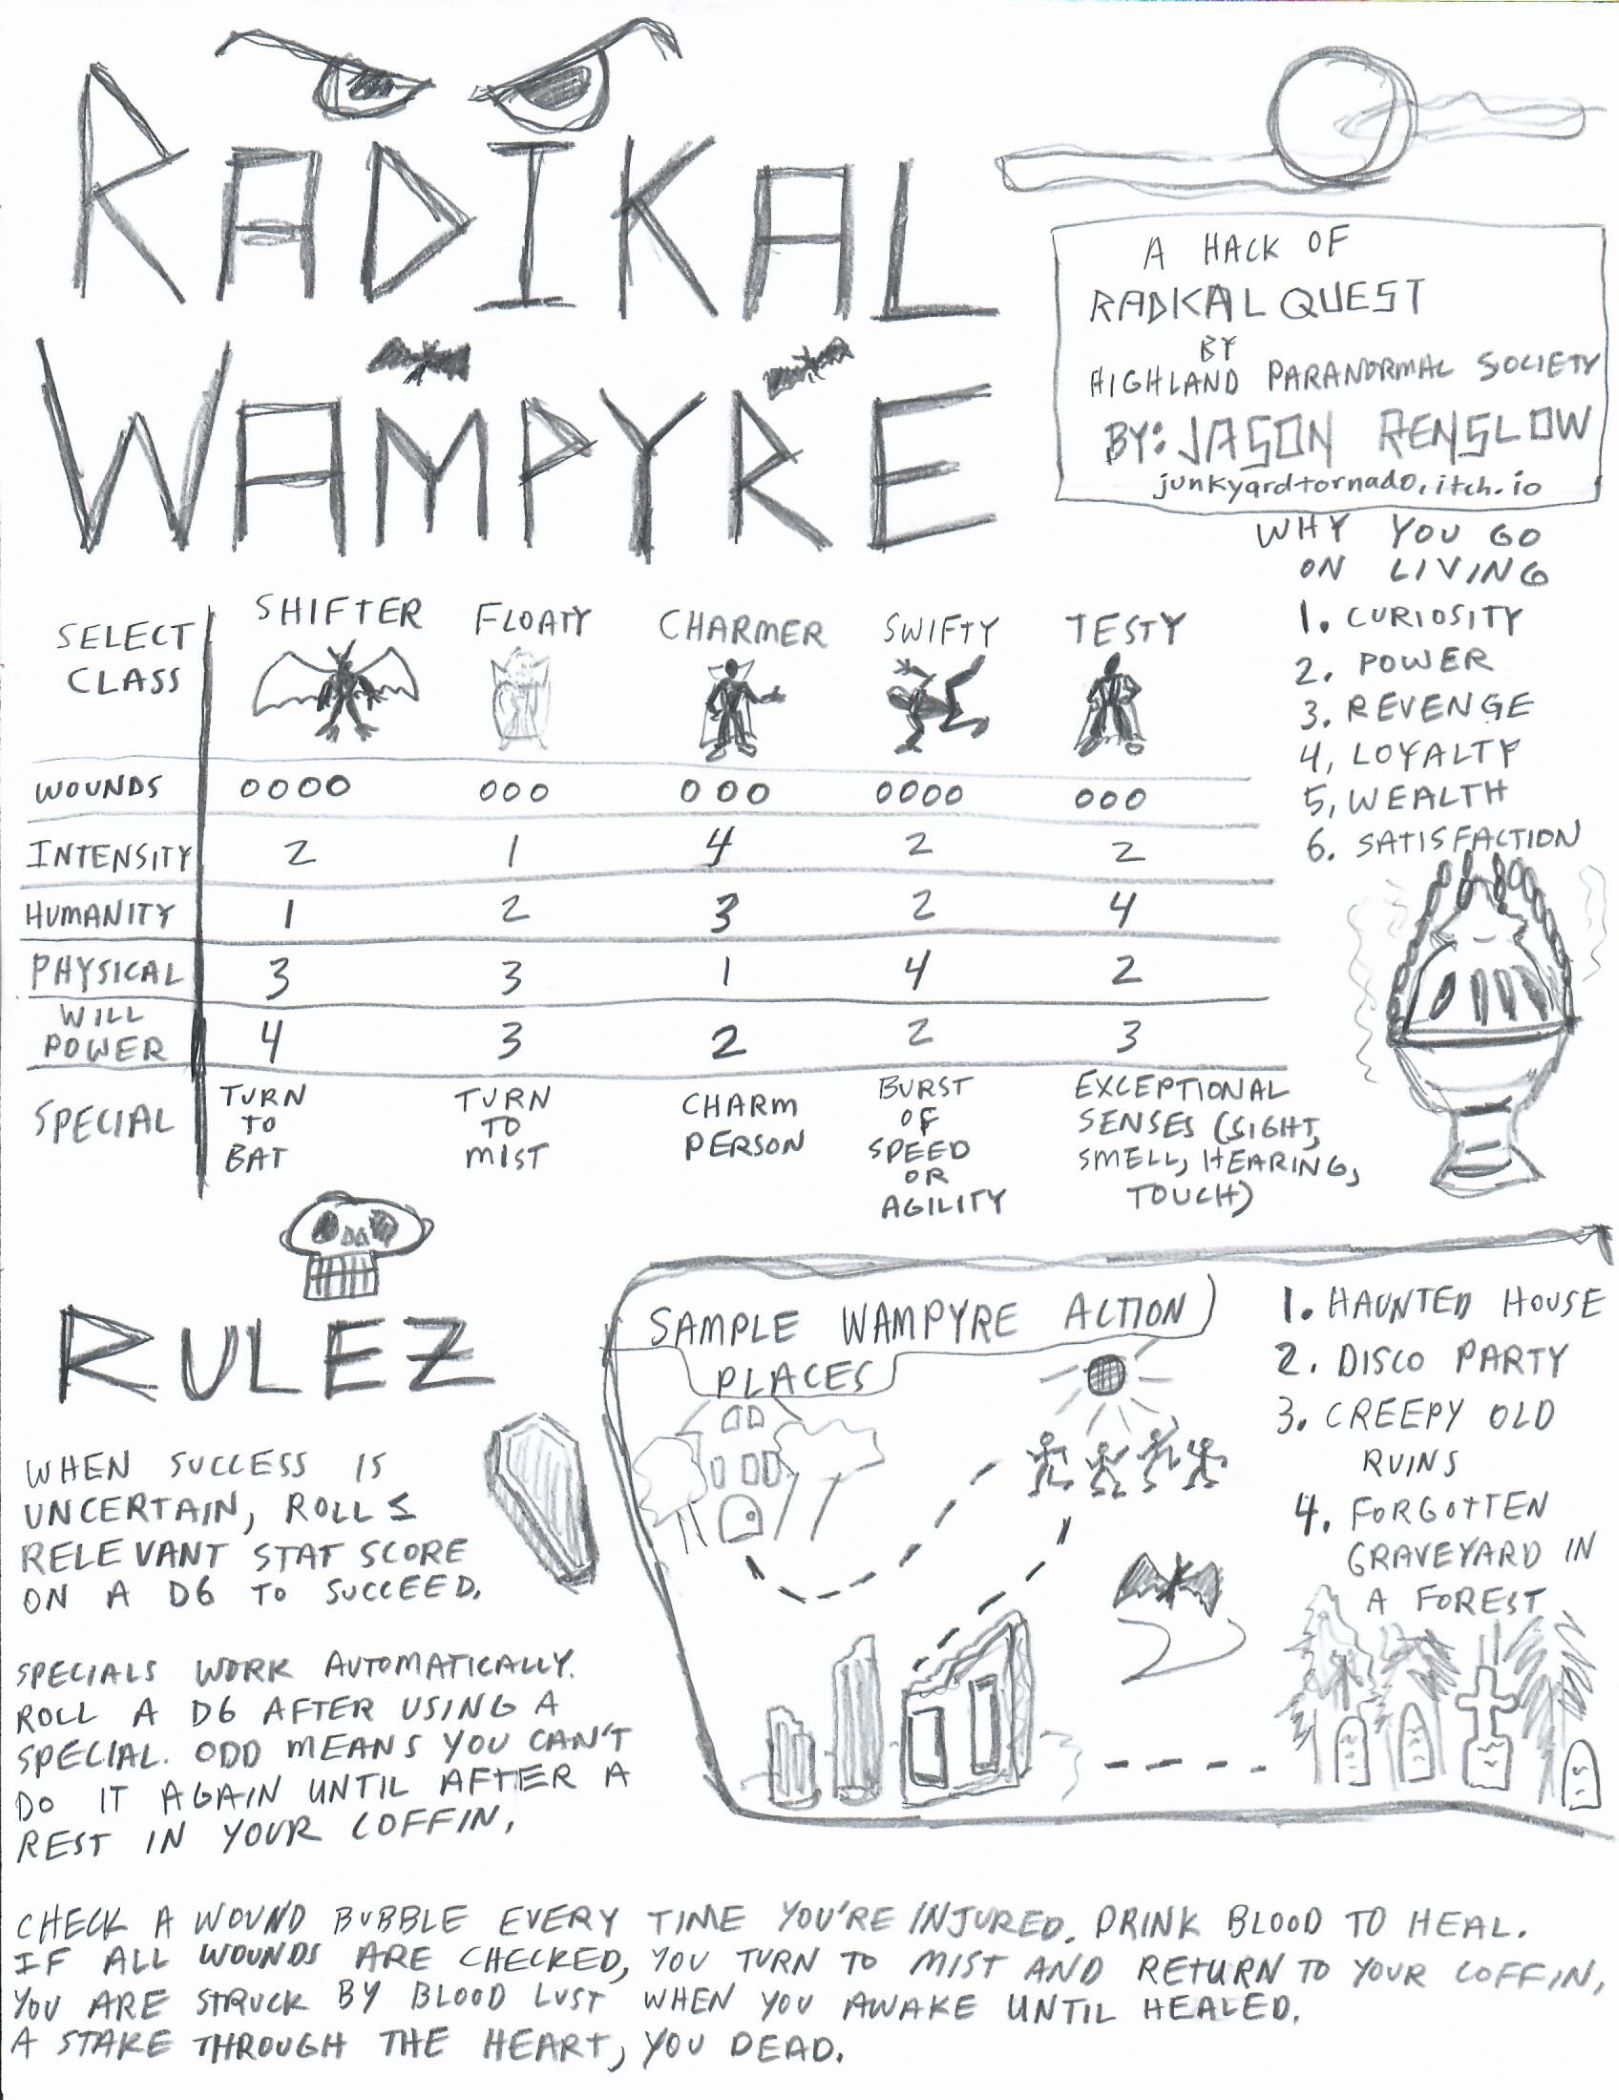 RADIKAL
WAMPYRE
A HACK OF
RADKAL QUEST
BY
HIGHLAND PARANORMAL SOCIETY
BY: JASON RENSLOW
junkyardtornado.itch.io
WHY YOU GO
ON LIVING
1. CURIOSITY
2. POWER
3. REVENGE
4, LOYALTY
5, WEALTH
6. SATISFACTION
SELECT CLASS SHIFTER FLOATY CHARMER SWIFTY TESTY
WOUNDS OOOO OOO OOO OOOO OOO
INTENSITY 2 1 4 2 2
HUMANITY 1 2 3 2 4
PHYSICAL 3 3 1 4 2
WILL POWER 4 3 2 2 3
SPECIAL
TURN
TO
BAT
TURN
TO
MIST
CHARM
PERSON
BURST
OF
SPEED
OR
AGILITY
EXCEPTIONAL
SENSES (SIGHT,
SMELL, HEARING,
TOUCH)
RULEZ
WHEN SUCCESS IS
UNCERTAIN, ROLL ≤
RELEVANT STAT SCORE
ON A D6 TO SUCCEED.
SPECIALS WORK AUTOMATICALLY.
ROLL A D6 AFTER USING A
SPECIAL. ODD MEANS YOU CAN'T
DO IT AGAIN UNTIL AFTER A
REST IN YOUR COFFIN.
SAMPLE WAMPYRE ACTION
PLACES
1. HAUNTED HOUSE
2. DISCO PARTY
3. CREEPY OLD
RUINS
4. FORGOTTEN
GRAVEYARD IN
A FOREST
CHECK A WOUND BUBBLE EVERY TIME YOU'RE INJURED. DRINK BLOOD TO HEAL.
IF ALL WOUNDS ARE CHECKED, YOU TURN TO MIST AND RETURN TO YOUR COFFIN,
YOU ARE STRUCK BY BLOOD LUST WHEN YOU AWAKE UNTIL HEALED.
A STAKE THROUGH THE HEART, YOU DEAD.